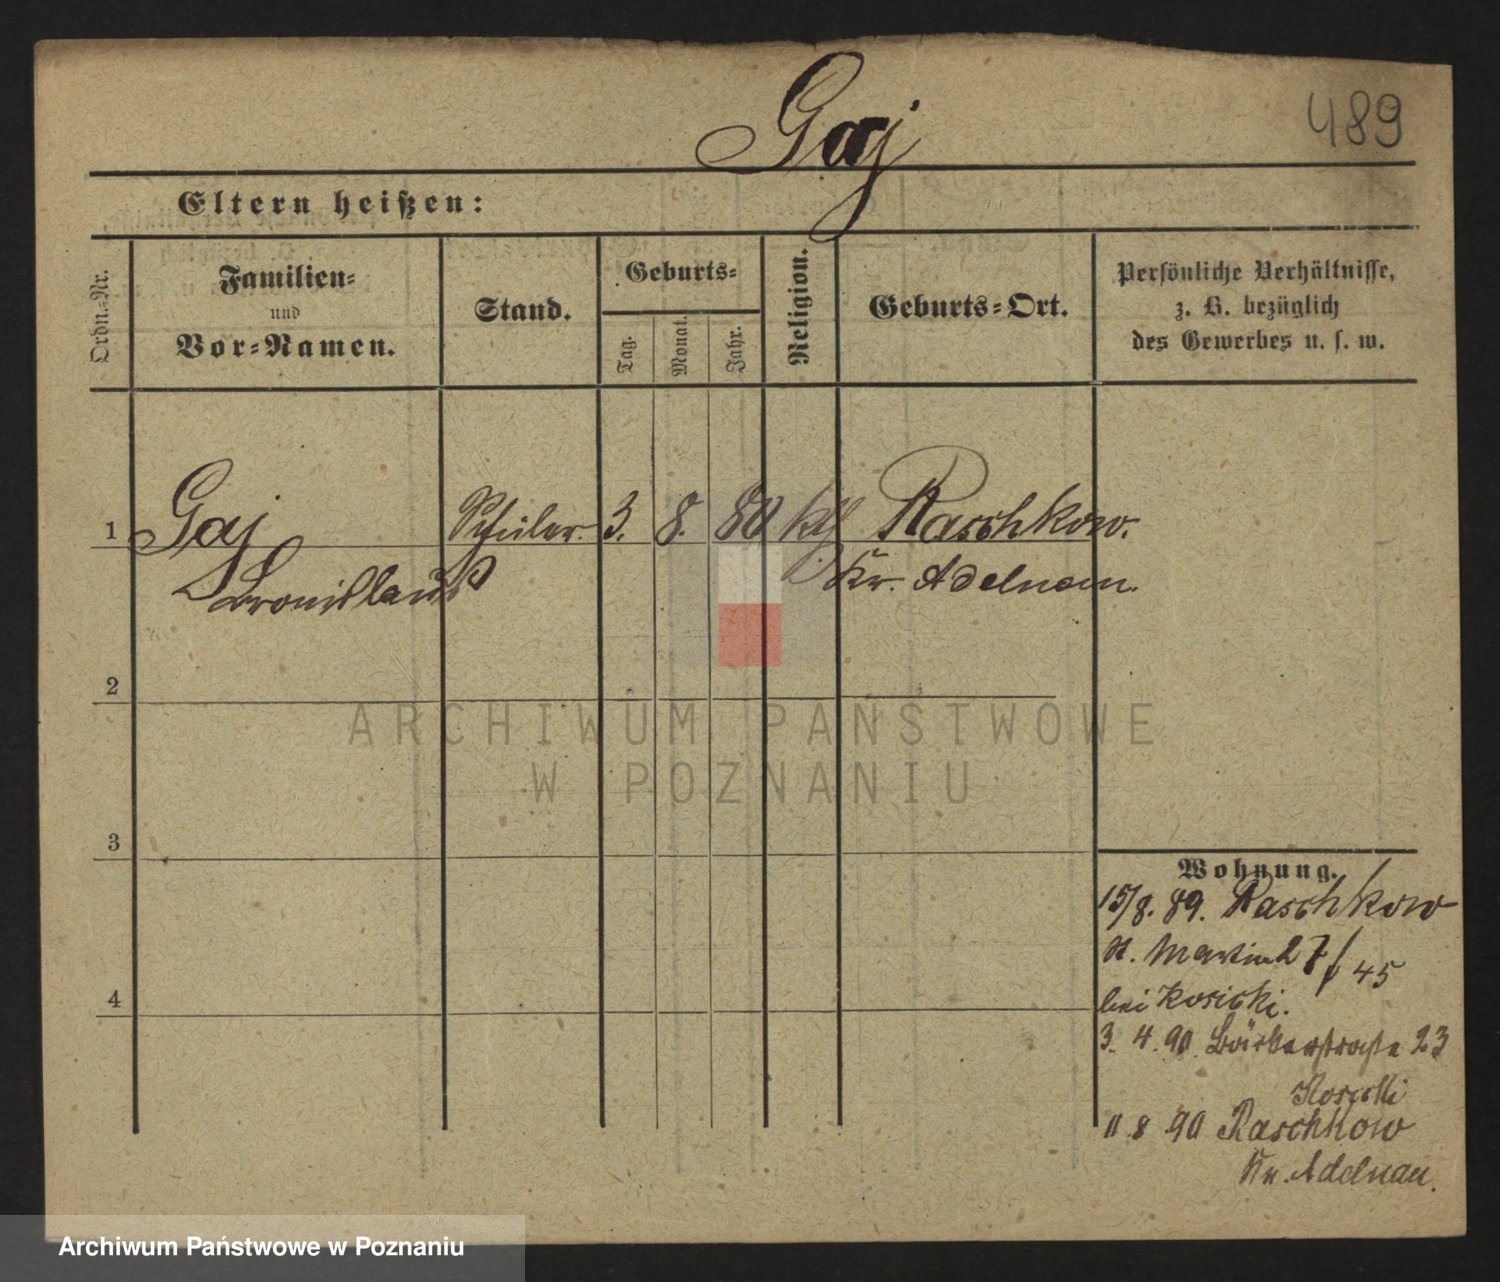 Gaj
489
Eltern heißen:
Ordn.-Nr.
Familien-
und
Vor-Namen.
Stand.
Geburts-
Tag.
Monat.
Jahr.
Religion.
Geburts-Ort.
Persönliche Verhältnisse,
z. B. bezüglich
des Gewerbes u. s. w.
1 Gaj Schüler. 3. 8. 80 kth Raschkow.
Bronislaus Kr. Adelnau.
2
3
4
ARCHIWUM PAŃSTWOWE
W POZNANIU
Wohnung.
15/8. 89. Raschkow
St. Martin 27/45
bei Kosicki.
3. 4. 90. Bäckerstraße 23
Kosicki
11 8 90 Raschkow
Kr. Adelnau.
Archiwum Państwowe w Poznaniu